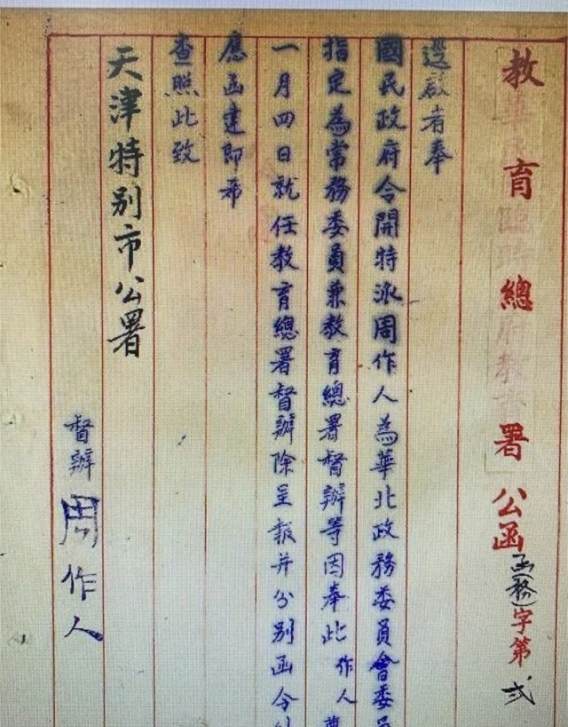 教育總署公函 函(務)字第弍
逕啟者奉
國民政府令開特派周作人為華北政務委員會委員
指定為常務委員兼教育總署督辦等因奉此作人
一月四日就任教育總署督辦除呈報并分別函令
應函達即希
查照此致
天津特別市公署
督辦周作人